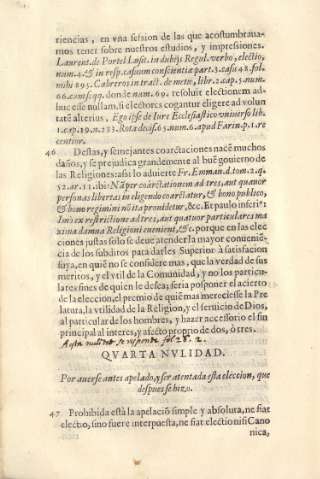 ciencias, en vna session de las que acostumbraua-
mos tener sobre nuestros estudios, y impressiones.
Laurent. de Portel Lusit. in dubijs Regul. verbo, electio,
num. 4. & in resp. casuum conscientiæ part. 3. casu 42. fol.
mihi 295. Cabreros in tract. de metu, lib. 2. cap. 5. num.
66. cum sqq. donde num. 69. resoluit electionem ad-
huc esse nullam, si electores cogantur eligere ad volun
tatẽ alterius. Ego ipse de Iure Ecclesiastico vniuerso lib.
1. cap. 19. n. 233. Rota decis. 65. num. 6. apud Farin. p. 1. re
centior.
46 Destas, y semejantes coarctaciones nacẽ muchos
daños, y se prejudica grandemente al buẽ gouierno de
las Religiones: assi lo aduierte Fr. Emman. d. tom. 2. q.
52. ar. 12. ibi: Nã per coarctationem ad tres, aut quatuor
personas libertas in eligendo coarctatur, & bono publico,
& bono regimini nõ ita prouidetur, &c. Et paulo infer. ïs:
Imò ex restrictione ad tres, aut quatuor particulares ma
xima damna Religioni eueniunt, &c. porque en las elec
ciones justas solo se deue atender la mayor conuenié-
cia de los subditos para darles Superior à satisfacion
suya, en quiẽ no se considere mas, que la verdad de sus
meritos, y el vtil de la Comunidad, y no los particu-
lares fines de quien le desea; seria posponer el acierto
de la eleccion, el premio de quiẽ mas mereciesse la Pre
latura, la vtilidad de la Religion, y el seruicio de Dios,
al particular de los hombres, y hazer necessario el fin
principal al interes, y afecto proprio de dos, ò tres.
A esta nulidad se responde fol. 28. 2.
QVARTA NVLIDAD.
Por auerse antes apelado, y ser atentada esta eleccion, que
despues se hizo.
47 Prohibida està la apelaciõ simple y absoluta, ne fiat
electio, sino fuere interpuesta, ne fiat electio nisi Cano
nica,